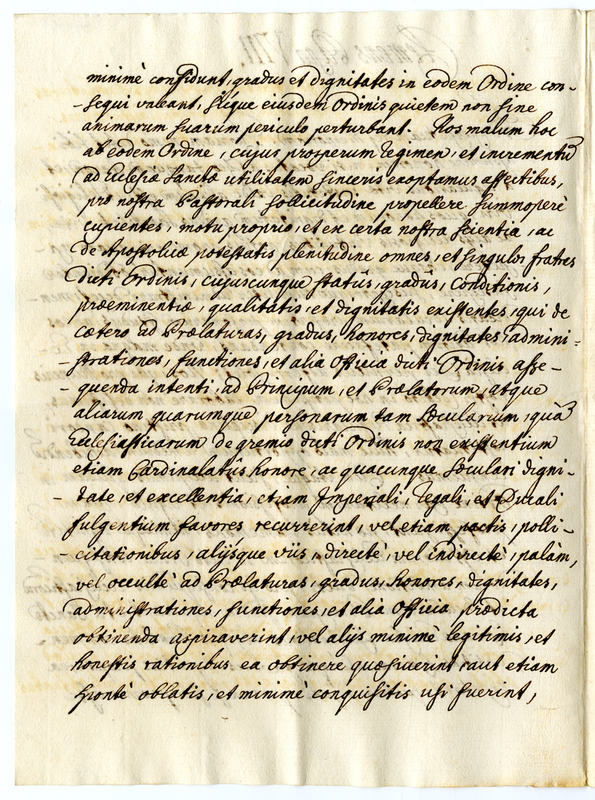 minimè confidunt, gradus et dignitates in eodem Ordine con-
-sequi valeant, sicque eiusdem Ordinis quietem non sine
animarum suarum periculo perturbant. Nos malum hoc
ab eodem Ordine, cujus prosperum regimen, et incrementũ
ad Ecclesiæ Sanctæ utilitatem sinceris exoptamus affectibus,
pro nostra Pastorali sollicitudine propellere summoperè
cupientes, motu proprio, et ex certa nostra scientia, ac
de Apostolicæ potestatis plenitudine omnes, et singulos fratres
dicti Ordinis, cujuscunque statûs, gradûs, conditionis,
præeminentiæ, qualitatis, et dignitatis existentes, qui de
cætero ad Prælaturas, gradus, honores, dignitates, admini=
-strationes, functiones, et alia Officia dicti Ordinis asse-
-quenda intenti, ad Principum, et Prælatorum, atque
aliarum quarumque personarum tam Sæcularium, quã
Ecclesiasticarum de gremio dicti Ordinis non existentium
etiam Cardinalatûs honore, ac quacunque sæculari digni-
-tate, et excellentia, etiam Imperiali, Regali, et Ducali
fulgentium favores recurrerint, vel etiam pactis, polli-
-citationibus, alijsque viis, directè, vel indirectè, palam,
vel occultè ad Prælaturas, gradus, honores, dignitates,
administrationes, functiones, et alia Officia prædicta
obtinenda aspiraverint, vel alijs minimè legitimis, et
honestis rationibus ea obtinere quæsiverint, aut etiam
spontè oblatis, et minimè conquisitis usi fuerint,